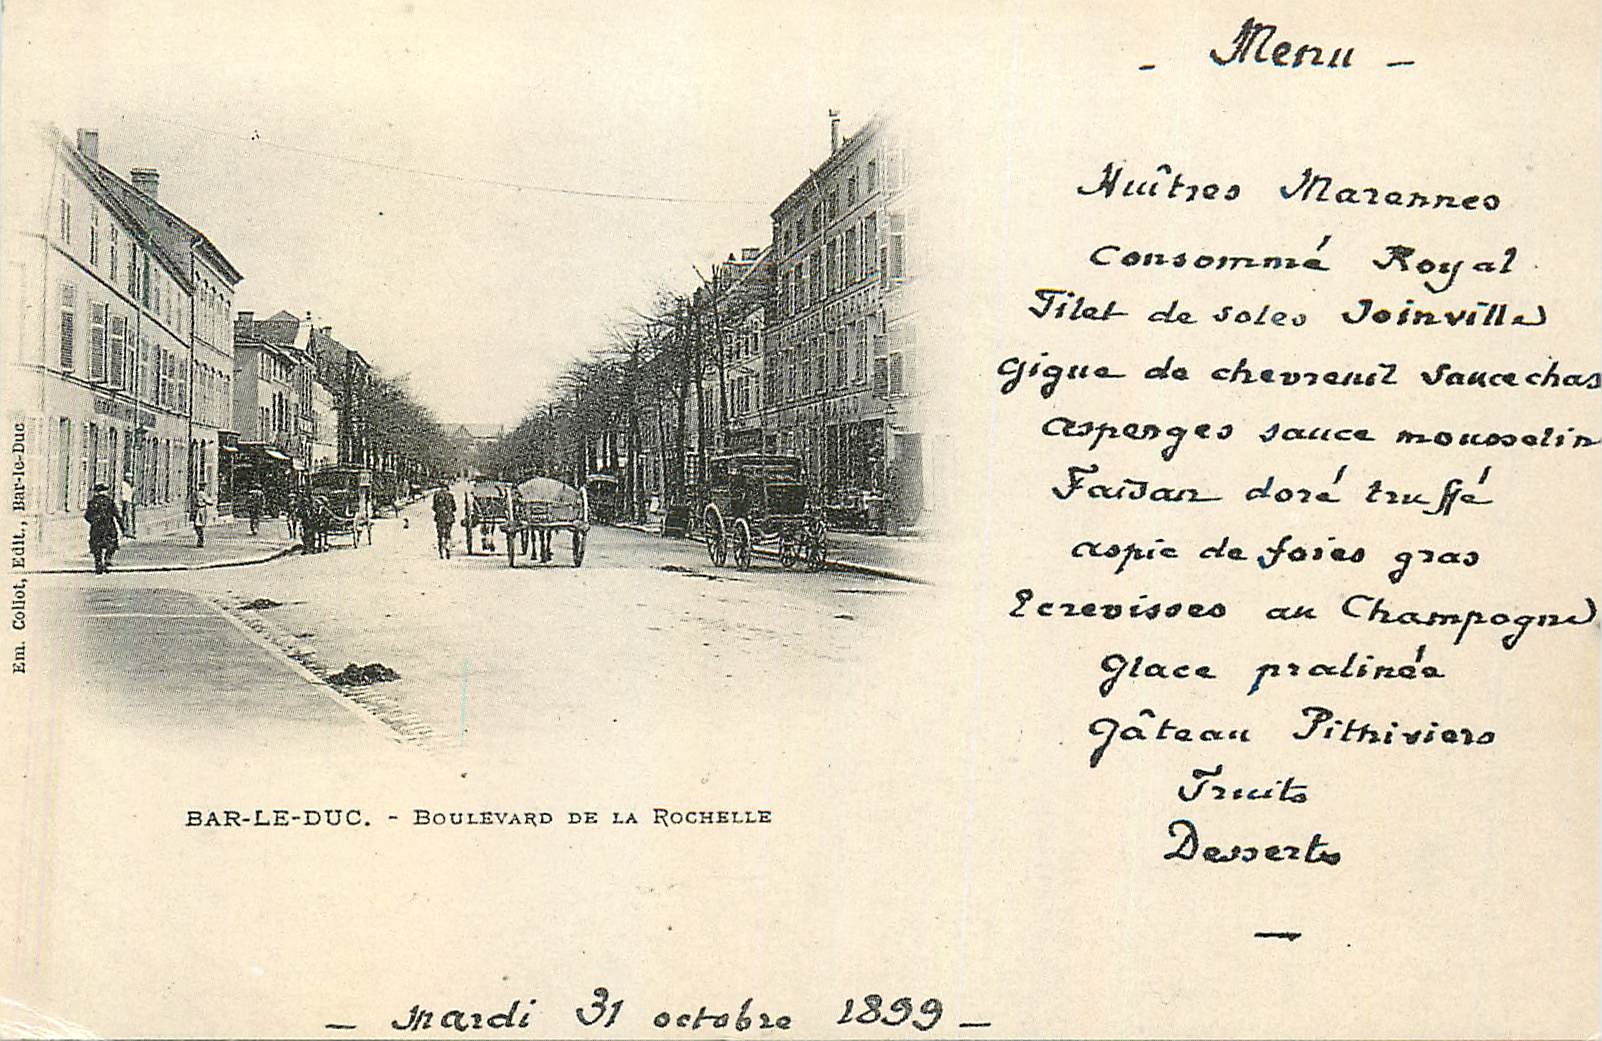 - Menu -
Huîtres Marennes
Consommé Royal
Filet de soles Joinville
Gigue de chevreuil Sauce chas
asperges sauce mousselin
Faisan doré truffé
aspic de foies gras
Ecrevisses au Champagne
Glace pralinée
Gâteau Pithiviers
Fruits
Desserts
Em. Collot, Edit., Bar-le-Duc
BAR-LE-DUC. - BOULEVARD DE LA ROCHELLE
- Mardi 31 octobre 1899 -